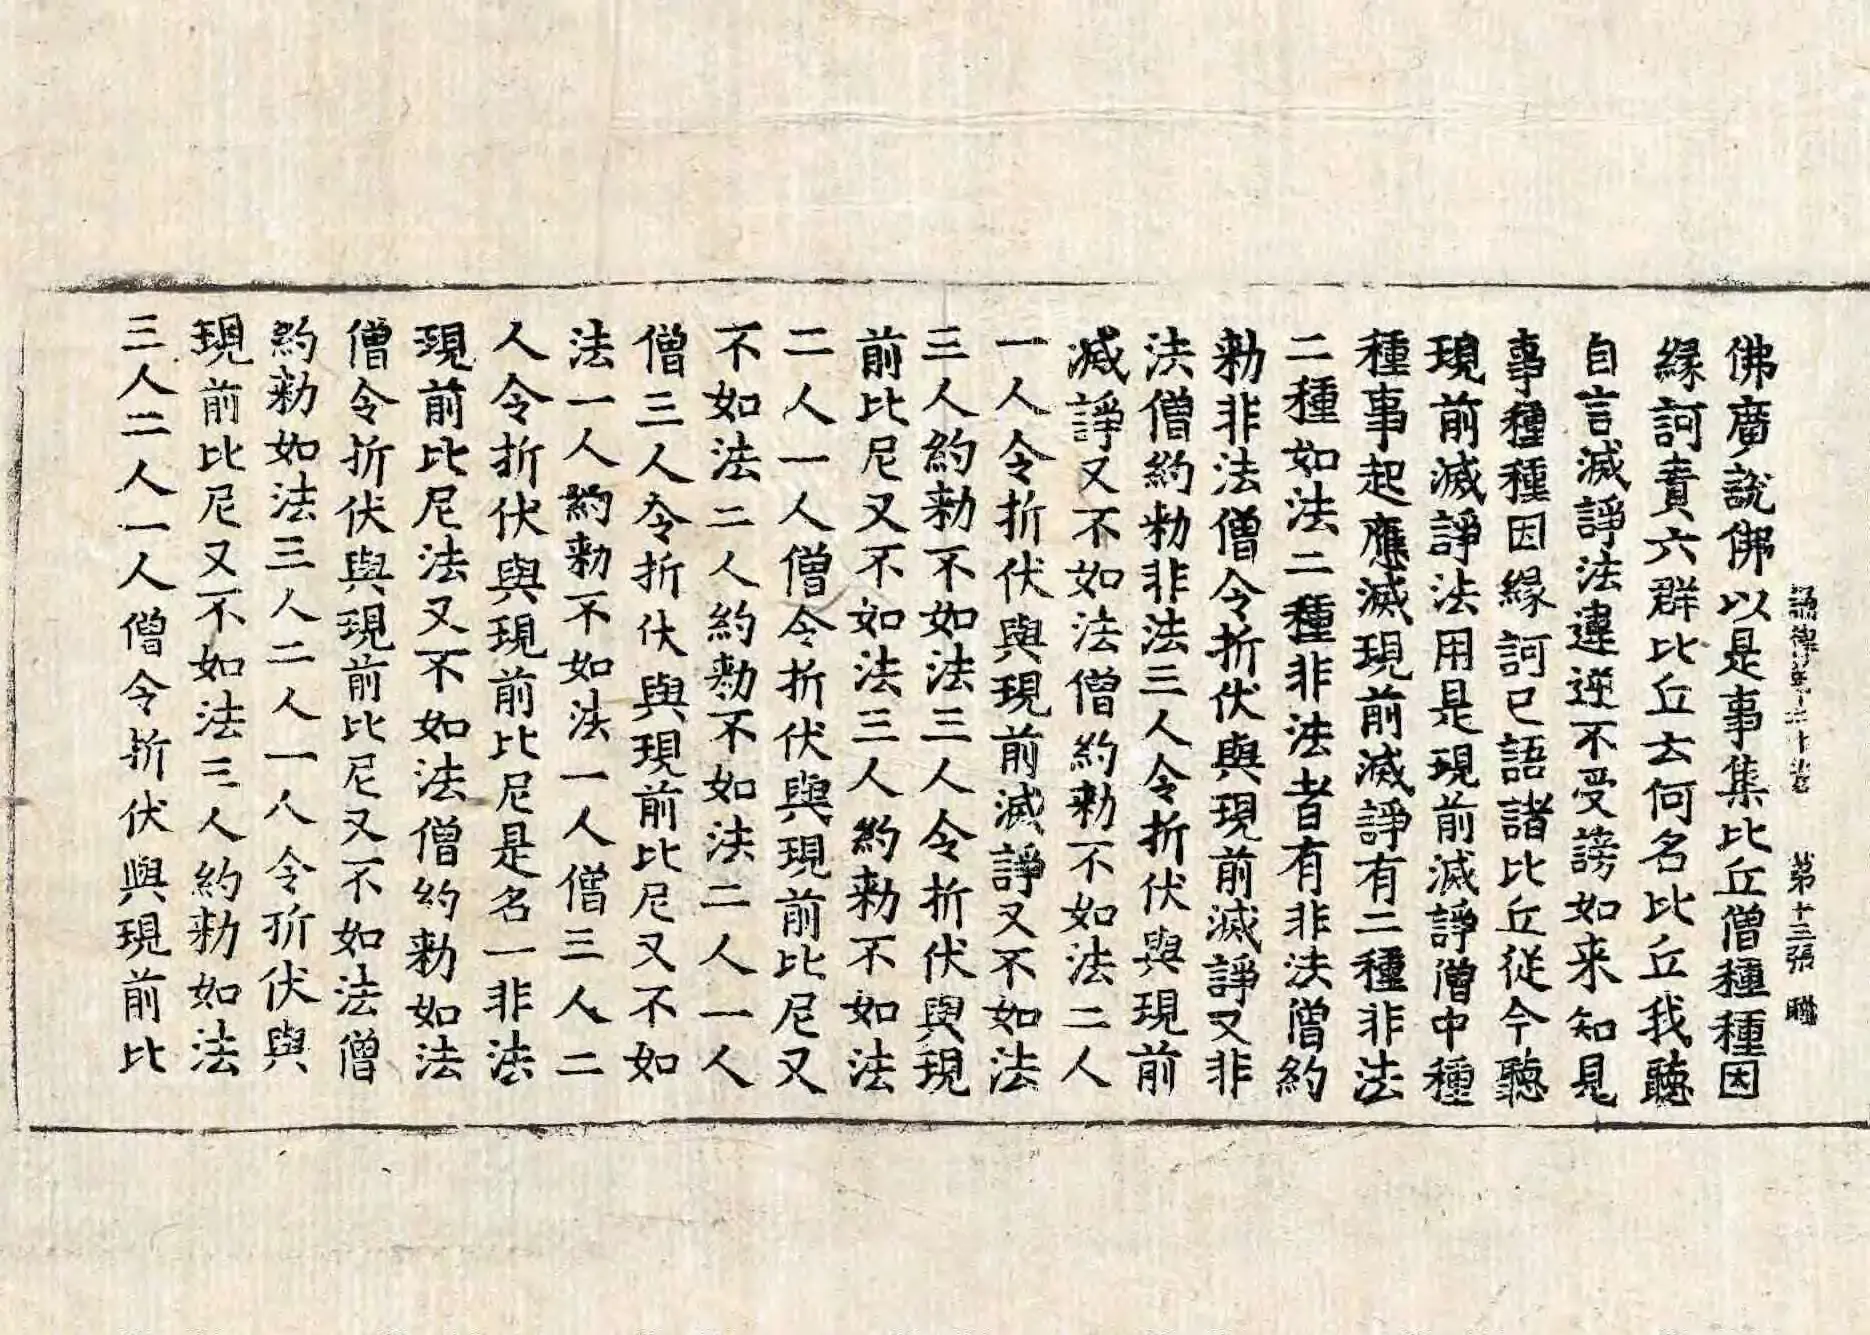 誦律第二十卷 第十三張
佛廣說佛以是事集比丘僧種種因
緣訶責六群比丘云何名比丘我聽
自言滅諍法違逆不受謗如来知見
事種種因緣訶已語諸比丘従今聽
現前滅諍法用是現前滅諍僧中種
種事起應滅現前滅諍有二種非法
二種如法二種非法者有非法僧約
勑非法僧令折伏與現前滅諍又非
法僧約勑非法三人令折伏與現前
滅諍又不如法僧約勑不如法二人
一人令折伏與現前滅諍又不如法
三人約勑不如法三人令折伏與現
前比尼又不如法三人約勑不如法
二人一人僧令折伏與現前比尼又
不如法二人約勑不如法二人一人
僧三人令折伏與現前比尼又不如
法一人約勑不如法一人僧三人二
人令折伏與現前比尼是名一非法
現前比尼法又不如法僧約勑如法
僧令折伏與現前比尼又不如法僧
約勑如法三人二人一人令折伏與
現前比尼又不如法三人約勑如法
三人二人一人僧令折伏與現前比